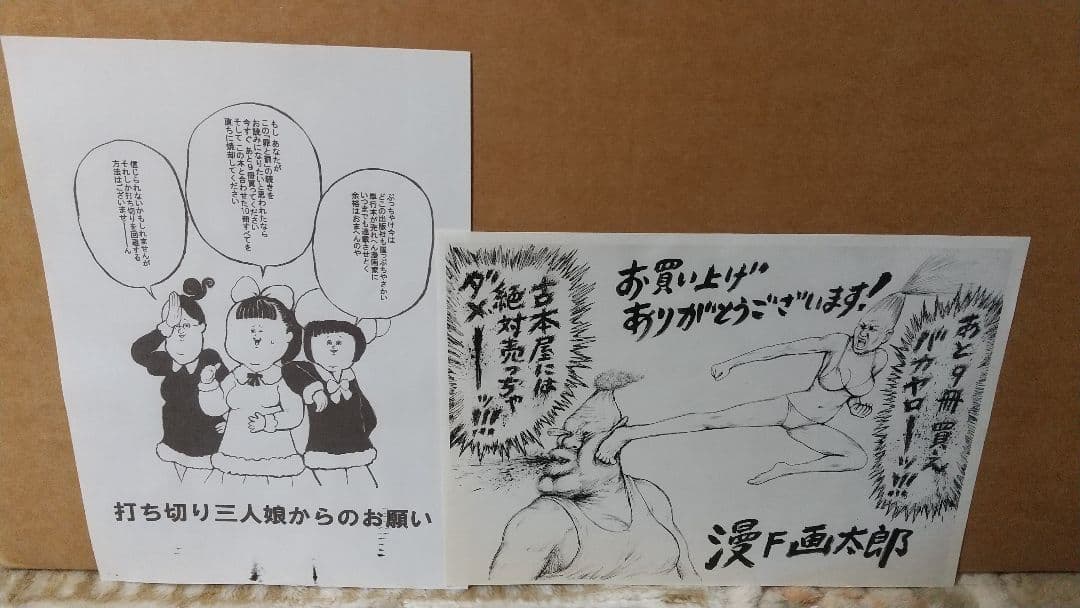 ぶっちゃけ今は
どこの出版社も崖っぷちやさかい
単行本が売れへん漫画家に
いつまでも連載させとく
余裕はおまへんのや
もし あなたが
この「罪と罰」の続きを
お読みになりたいと思われたなら
今すぐ あと9冊買ってください
そして この本と合わせた10冊すべてを
直ちに焼却してください
信じられないかもしれませんが
それしか打ち切りを回避する
方法はございませーーーん
打ち切り三人娘からのお願い
お買い上げ
ありがとうございます!
あと9冊買え
バカヤローーッ!!!
古本屋には
絶対売っちゃ
ダメーーーッ!!!
漫F画太郎